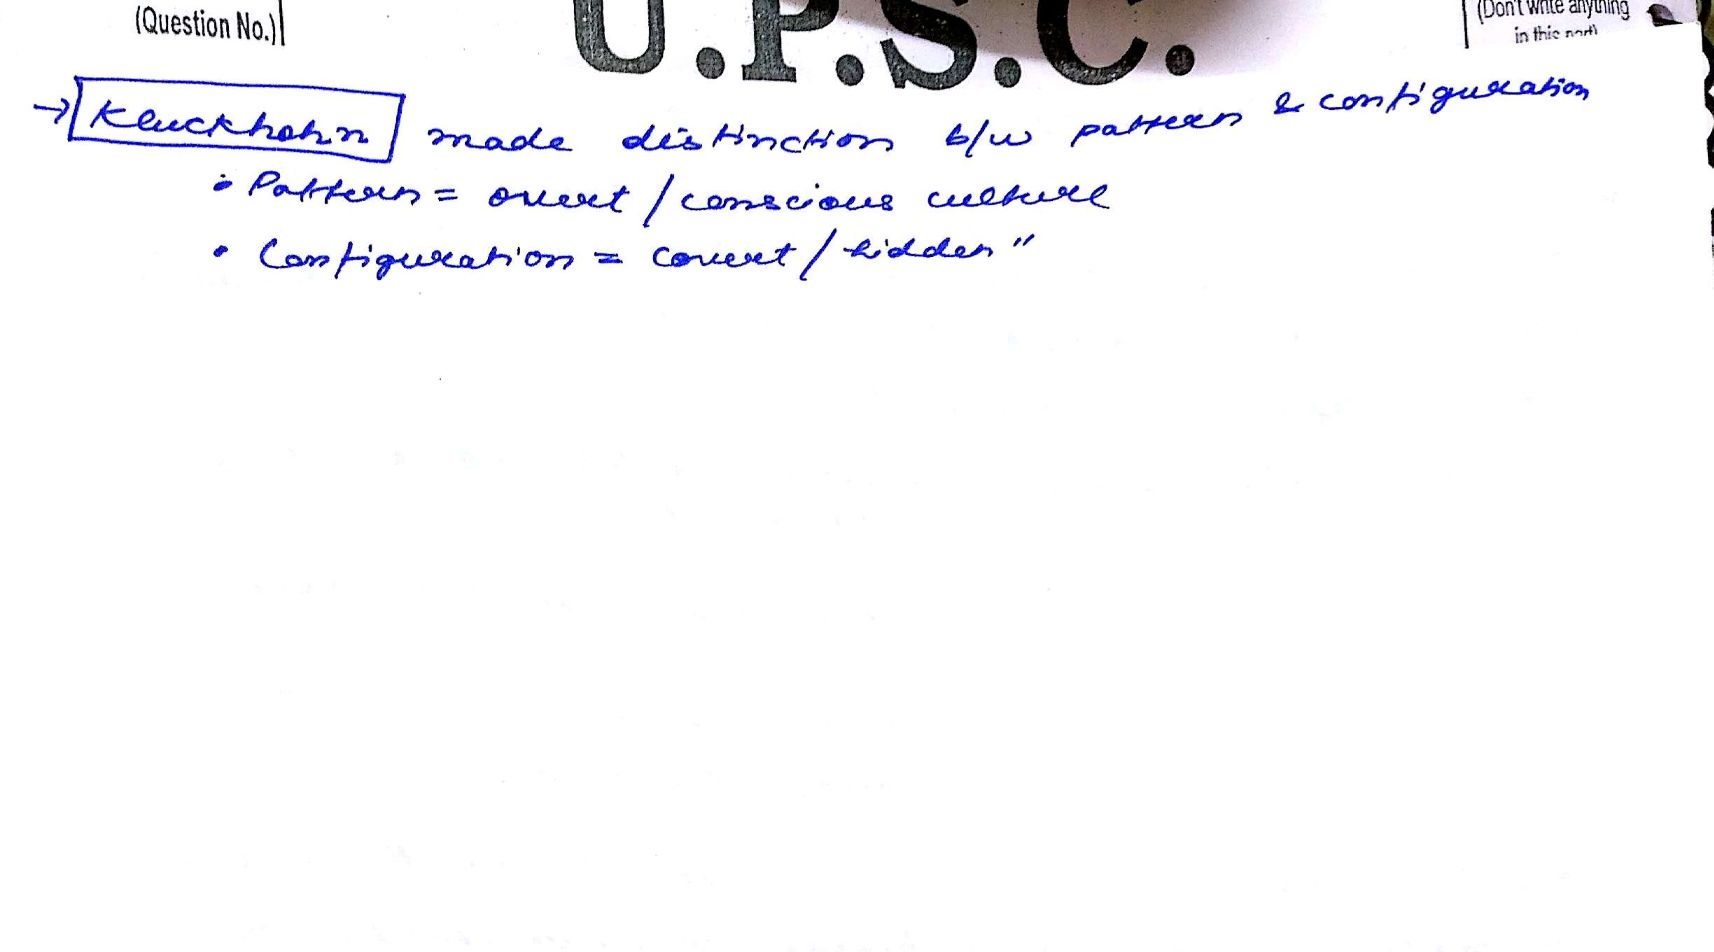 (Question No.)
U.P.S.C.
(Don't write anything
in this part)
→ Kluckhohn made distinction b/w pattern & configuration
• Pattern = overt / conscious culture
• Configuration = covert / hidden "